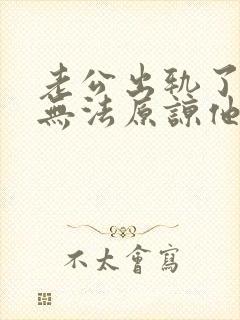 老公出軌了
無法原諒他
不太會寫